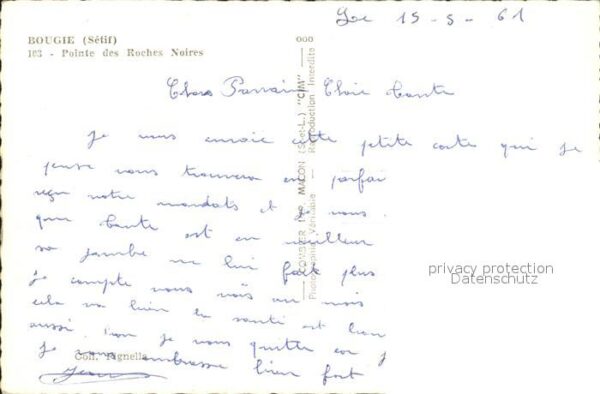 BOUGIE (Sétif)
103 - Pointe des Roches Noires
Le 15-5-61
Chers Parrain Chère tante
Je vous envoie cette petite carte qui je
pense vous trouvera en parfai
reçu votre mandats et je vous
que tante est en meilleur
sa jambe ne lui fait plus
je compte vous voir un mois
cela va bien la santé est bon
aussi. Bon je vous quitte car j
Je vous embrasse bien fort
Jean
Coll. Pignella
COMBIER IMP. MACON (S.-et-L.) "CIM"
Photographie Véritable - Reproduction Interdite
privacy protection
Datenschutz